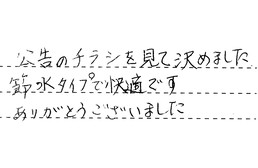 公告のチラシを見て決めました
節水タイプで快適です
ありがとうございました